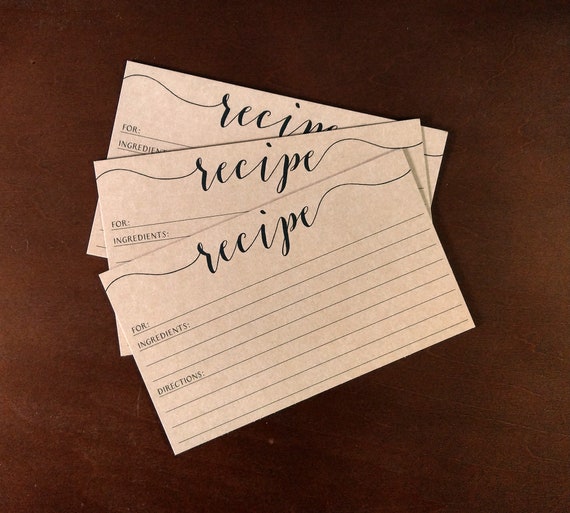 recipe
FOR:
INGREDIENTS:
recipe
FOR:
INGREDIENTS:
recipe
FOR:
INGREDIENTS:
DIRECTIONS: